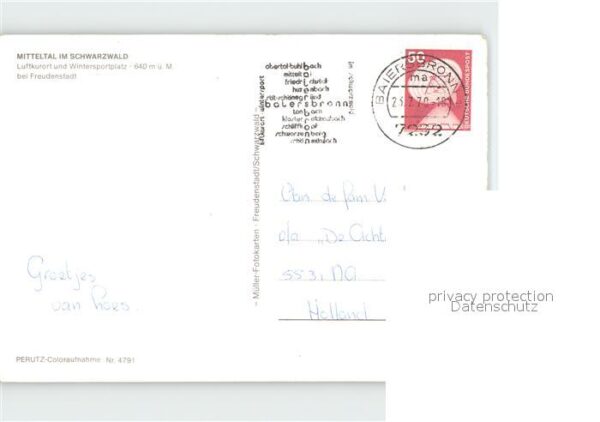 MITTELTAL IM SCHWARZWALD
Luftkurort und Wintersportplatz - 640 m ü. M
bei Freudenstadt
obertal-buhlbach
mitteltal
friedrichstal
huzenbach
röt-schönegründ
baiersbronn
tonbach
klosterreichenbach
schliffkopf
schwarzenberg
schönmünzach
luftkurort · wintersport
im schwarzwald
50
DEUTSCHE BUNDESPOST
BAIERSBRONN
ma
7292
– Müller-Fotokarten · Freudenstadt/Schwarzwald
Aan de fam V
p/a "De Acht
553, NA
Holland
Groetjes
van Loes.
privacy protection
Datenschutz
PERUTZ-Coloraufnahme Nr. 4791